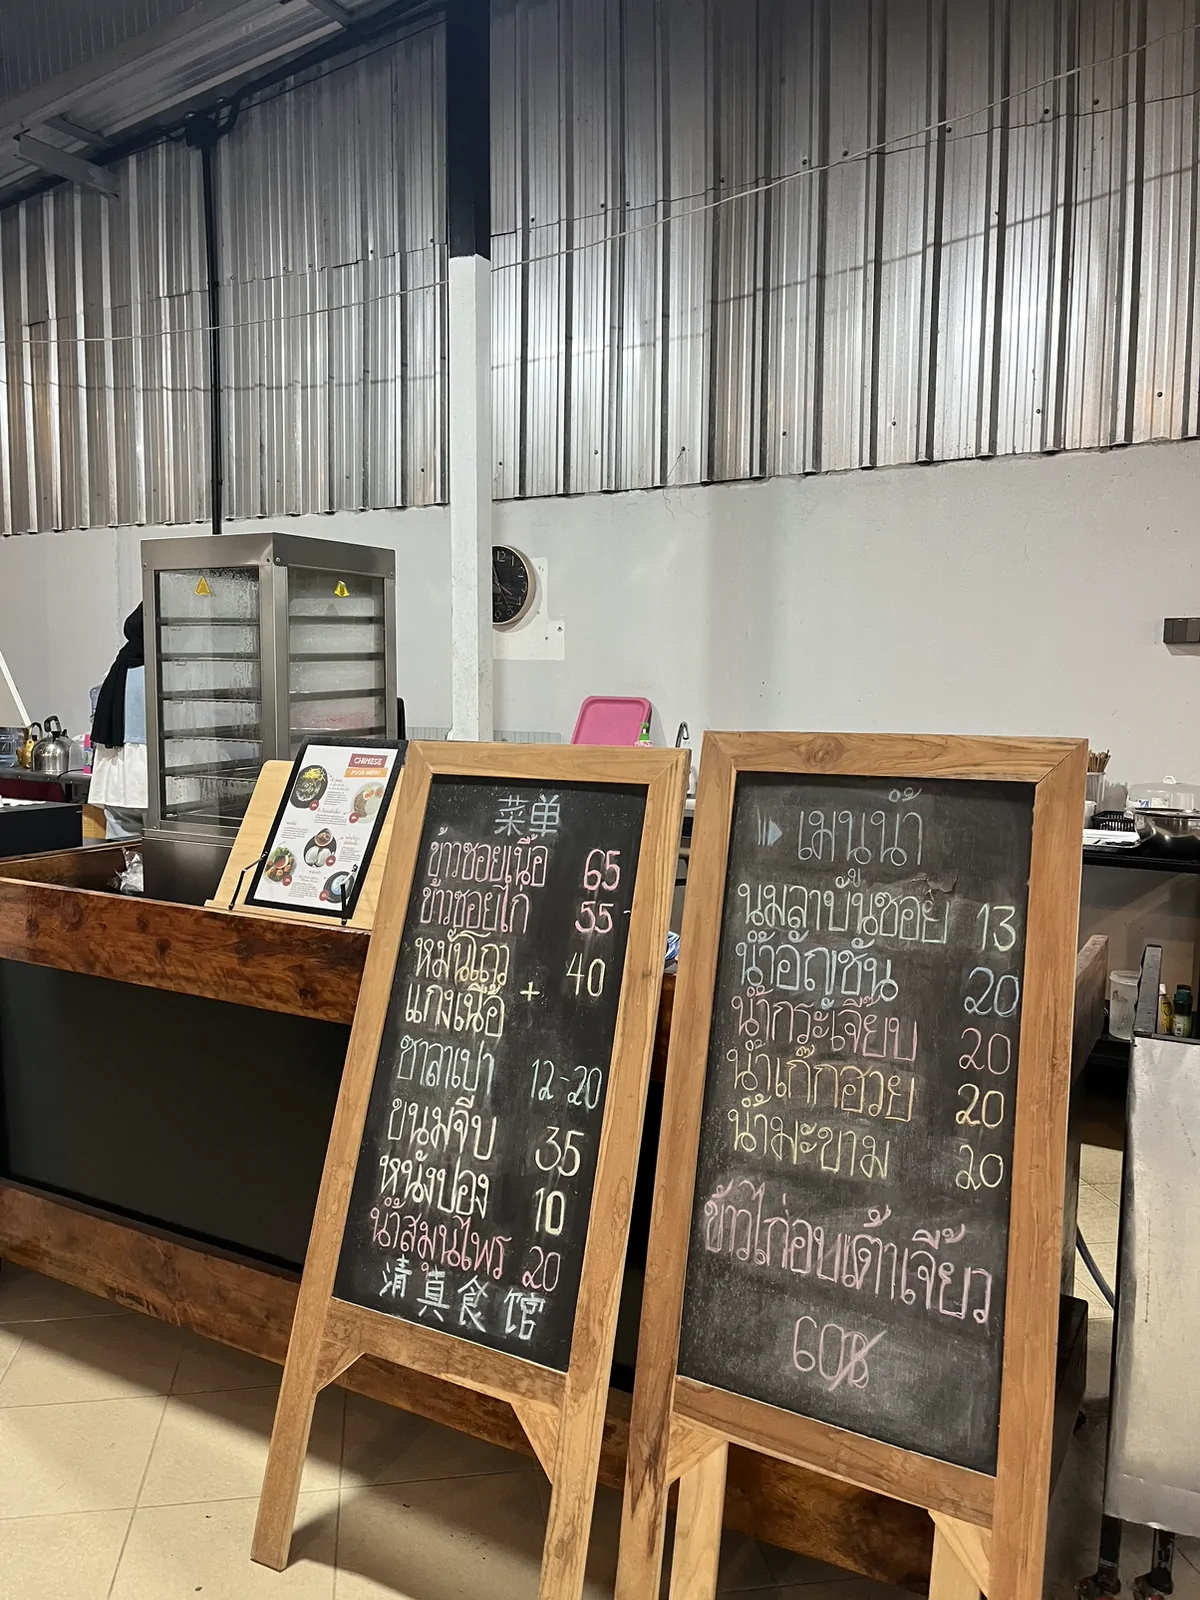 CHINESE
FOOD MENU
菜单
ข้าวซอยเนื้อ 65
ข้าวซอยไก่ 55
หมั่นโถว + 40
แกงเนื้อ
ซาลาเปา 12-20
ขนมจีบ 35
หนังปอง 10
น้ำสมุนไพร 20
清真食馆
เมนูน้ำ
นมลาบันซอย 13
น้ำอัญชัน 20
น้ำกระเจี๊ยบ 20
น้ำเก๊กฮวย 20
น้ำมะขาม 20
ข้าวไก่อบเต้าเจี้ยว
60฿